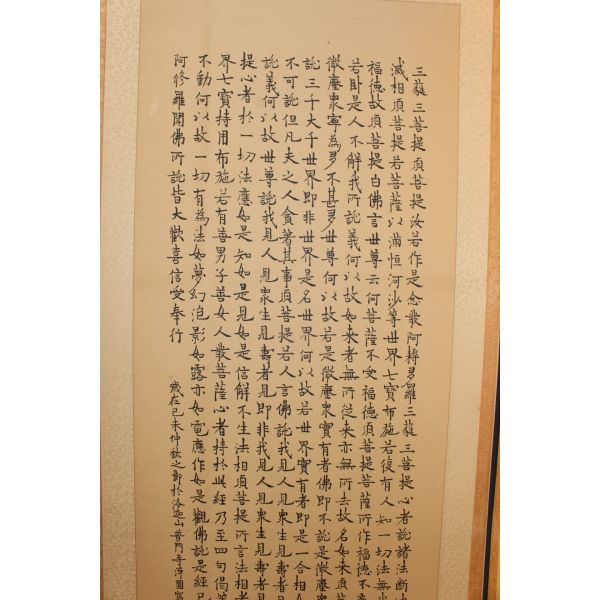 三藐三菩提須菩提汝若作是念發阿耨多羅三藐三菩提心者說諸法斷
滅相須菩提若菩薩以滿恒河沙等世界七寶布施若復有人知一切法無
福德故須菩提白佛言世尊云何菩薩不受福德須菩提菩薩所作福德不
若臥是人不解我所說義何以故如來者無所從來亦無所去故名如來須
微塵眾寧為多不甚多世尊何以故若是微塵眾實有者佛即不說是微塵
說三千大千世界即非世界是名世界何以故若世界實有者即是一合相
不可說但凡夫之人貪著其事須菩提若人言佛說我見人見眾生見
說義何以故世尊說我見人見眾生見壽者見即非我見人見眾生見壽者
提心者於一切法應如是知如是見如是信解不生法相須菩提所言法相
界七寶持用布施若有善男子善女人發菩薩心者持於此經乃至四句偈
不動何以故一切有為法如夢幻泡影如露亦如電應作如是觀佛說是經已
阿修羅聞佛所說皆大歡喜信受奉行
歲在己未仲秋之節於洛迦山普門寺淨圓寫